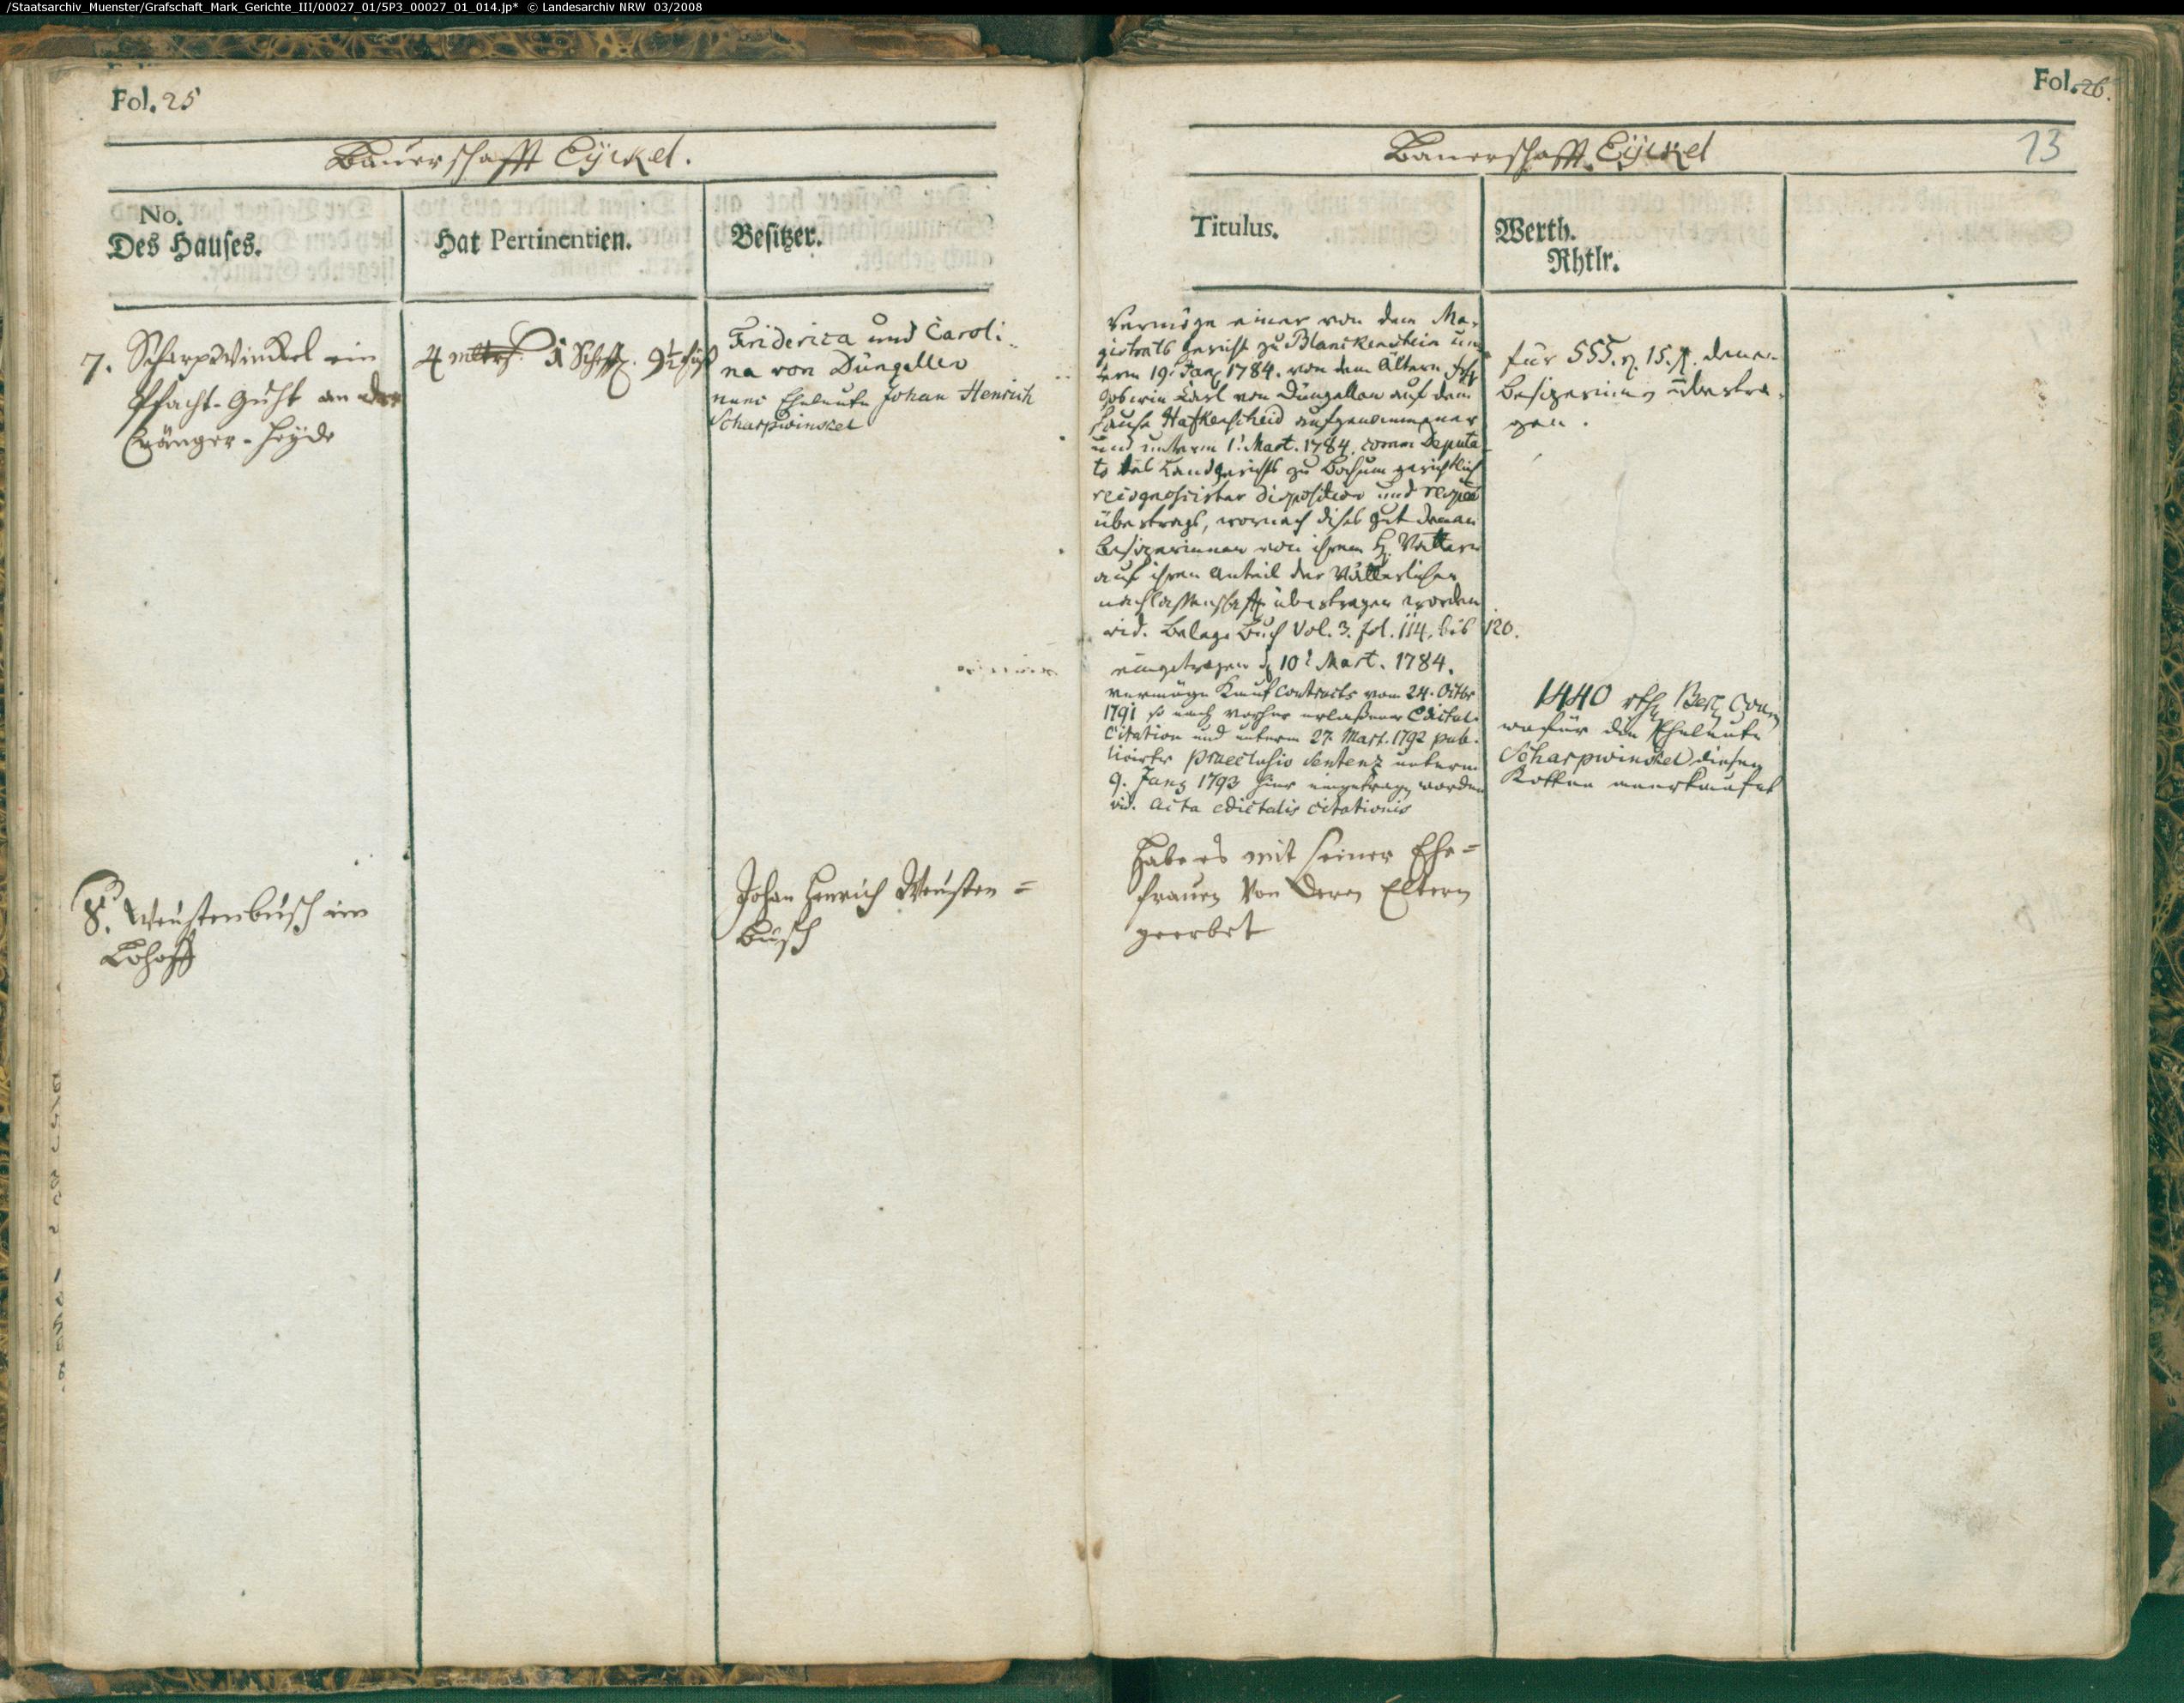 /Staatsarchiv_Muenster/Grafschaft_Mark_Gerichte_III/00027_01/5P3_00027_01_014.jp* © Landesarchiv NRW 03/2008
Fol. 25
Bauerschafft Eÿckel.
No.
Des Hauses.
Hat Pertinentien.
Besitzer.
7. Scharpswinckel ein
Pfacht-Guht an der
Cränger-Heÿde
4 mltrs. 1 Scheffl. 9½
Friderica und Caroli-
na von Düngellen
nunc Eheleute Johan Henrich
Scharpwinckel
8. Weustenbusch im
Lohoff
Johan Henrich Weusten=
busch
Fol. 26.
Bauerschafft Eÿckel
13
Titulus.
Werth.
Rhtlr.
Vermöge einer von dem Ma-
gistrats gericht zu Blanckenstein un-
term 19. Jan. 1784. von dem Ältern
Goswin Carl von Düngellen auf dem
Hause Hafkenscheid aufgenommener
und unterm 1t Mart. 1784. coram Deputa
to des Landgerichts zu Bochum gerichtlich
recognoscirter disposition und
übertrags, wornach dises gut denen
Besizerinnen von ihrem H. Vattern
auf ihren Anteil der Vätterlichen
übertragen worden
vid. Belags Buch Vol. 3. fol. 114. bis 120.
eingetragen d. 10t Mart. 1784.
vermöge Kauf Contracts vom 24. Octbr
1791 so nach vorher erlaßener Edictal-
Citation und unterm 27. Mart. 1792 pub-
licirter Praeclusio Sentenz unterm
9. Jan. 1793 hier eingetragen worden
vid. Acta edictalis citationis
für 555. 15. denen
Besizerinnen übertra-
gen.
1440 rth Berl. Cour.
wofür die Eheleute
Scharpwinckel diesen
Kotten anerkaufet
Habe es mit seiner Ehe=
frauen von deren Eltern
geerbet